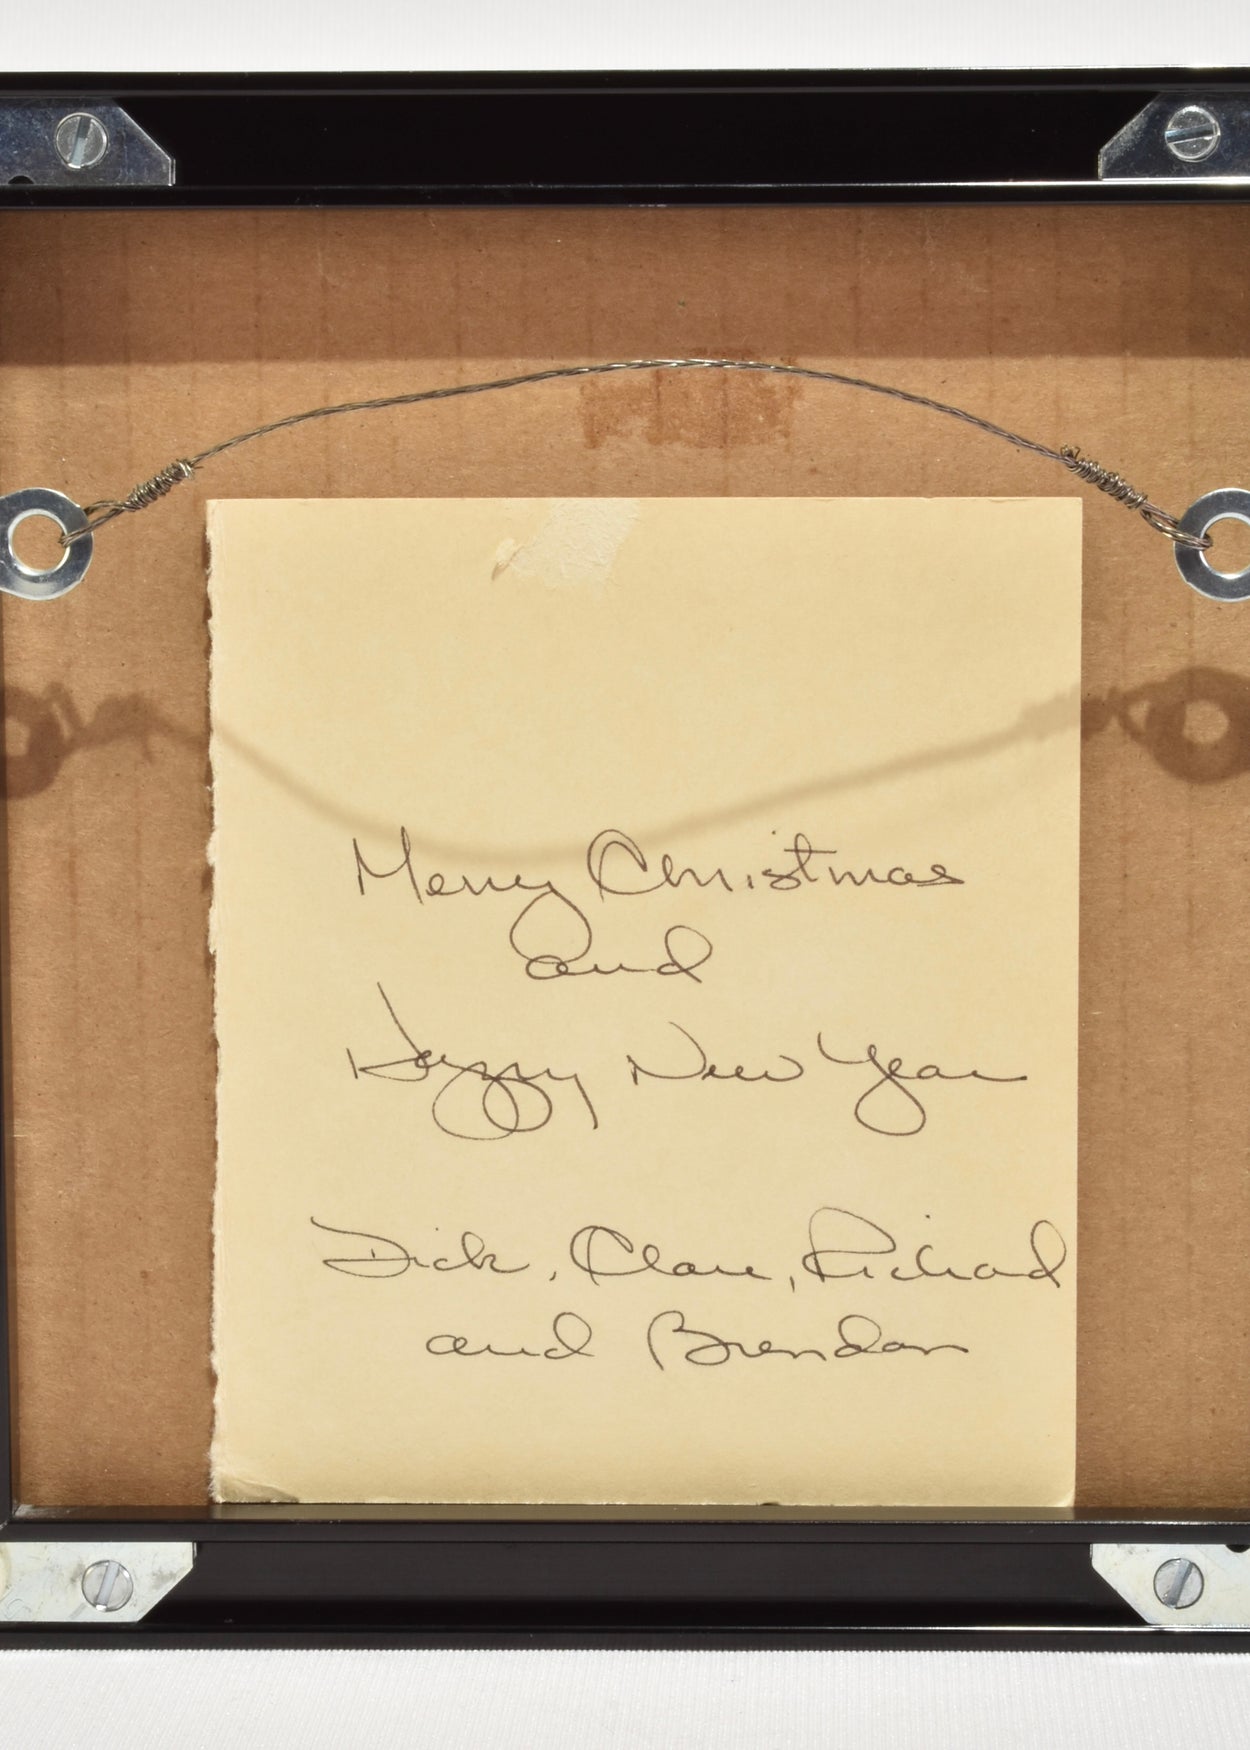 Merry Christmas
and
Happy New Year
Dick, Clare, Richard
and Brendan